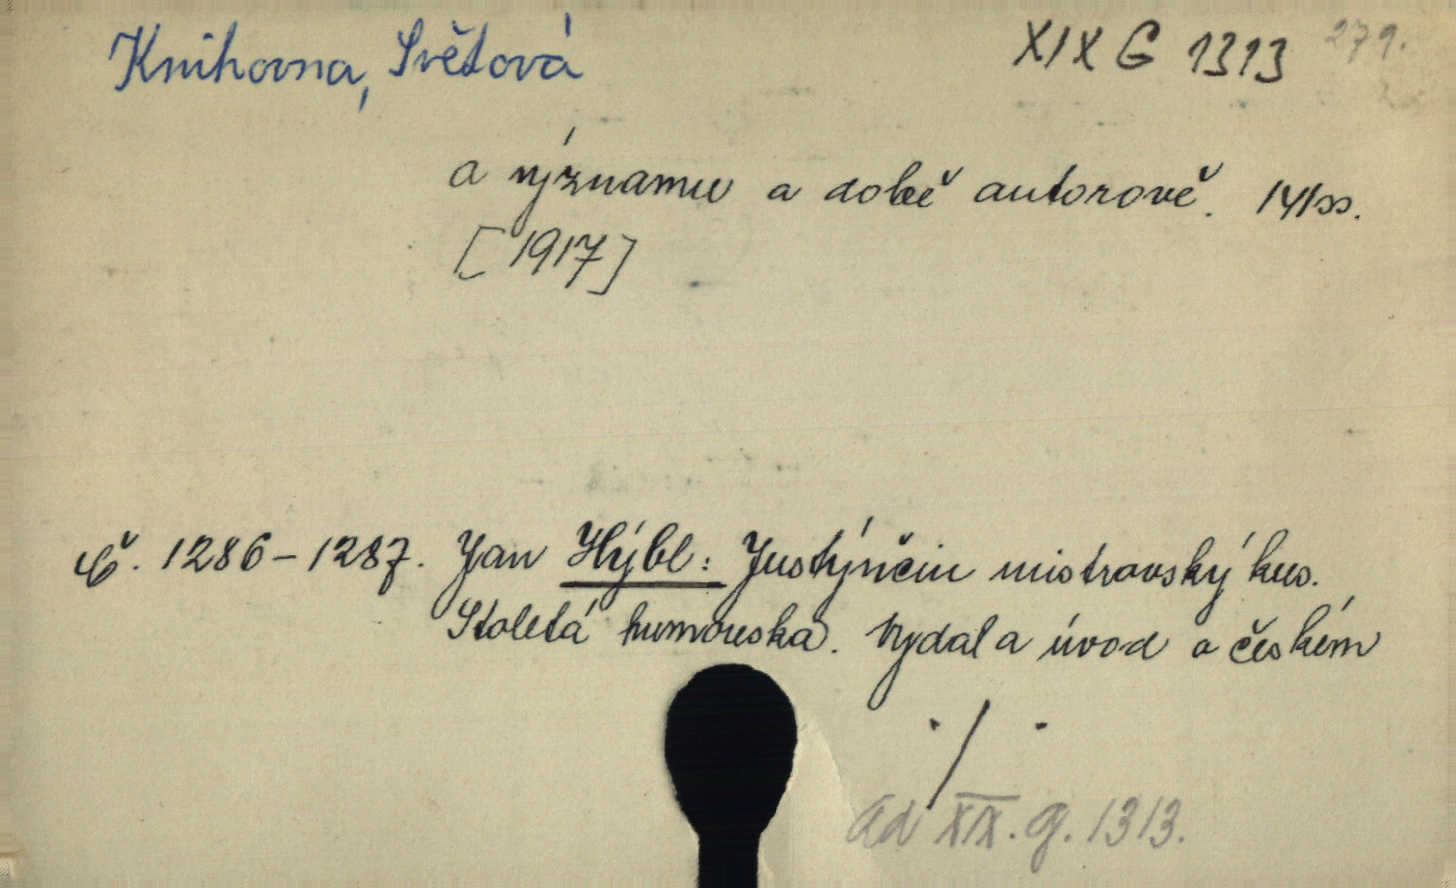 Knihovna, Světová
XIX G 1313
279.
a významu a době autorově. 141 ss.
[1917]
Č. 1286-1287. Jan Hýbl: Justýnčin mistrovský kus.
Stoletá humoreska. Vydal a úvod o českém
./.
ad XIX. G. 1313.